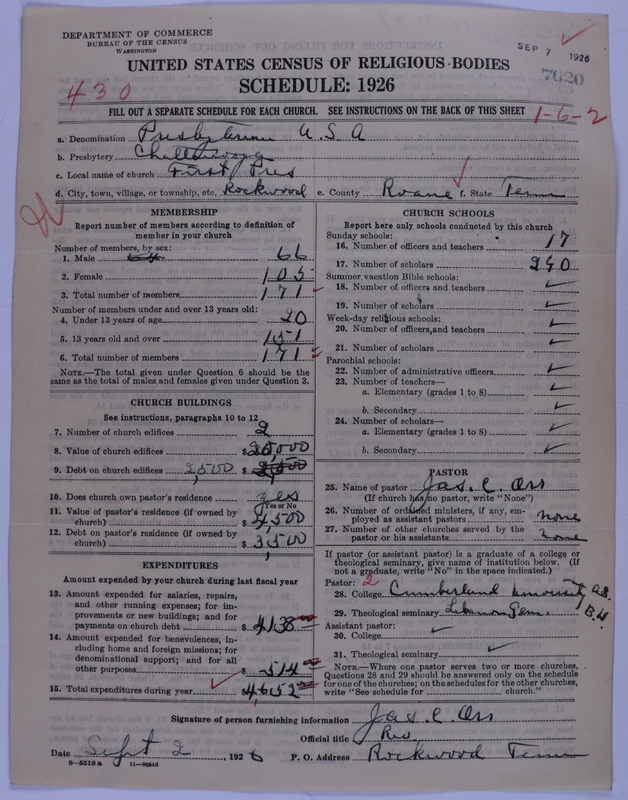 DEPARTMENT OF COMMERCE
BUREAU OF THE CENSUS
WASHINGTON
SEP 7 1926
7020
UNITED STATES CENSUS OF RELIGIOUS BODIES
SCHEDULE: 1926
430
FILL OUT A SEPARATE SCHEDULE FOR EACH CHURCH. SEE INSTRUCTIONS ON THE BACK OF THIS SHEET
1-6-2
a. Denomination Presbyterian U.S.A
b. Presbytery Chattanooga
c. Local name of church First Pres
d. City, town, village, or township, etc. Rockwood e. County Roane f. State Tenn
MEMBERSHIP
Report number of members according to definition of
member in your church
Number of members, by sex:
1. Male 64 66
2. Female 105
3. Total number of members 171
Number of members under and over 13 years old:
4. Under 13 years of age 20
5. 13 years old and over 151
6. Total number of members 171
NOTE.—The total given under Question 6 should be the
same as the total of males and females given under Question 3.
CHURCH BUILDINGS
See instructions, paragraphs 10 to 12
7. Number of church edifices 2
8. Value of church edifices $ 25,000
9. Debt on church edifices 2,500 $ 2,500
10. Does church own pastor's residence yes
Yes or No
11. Value of pastor's residence (if owned by
church) $ 4,500
12. Debt on pastor's residence (if owned by
church) $ 3,500
EXPENDITURES
Amount expended by your church during last fiscal year
13. Amount expended for salaries, repairs,
and other running expenses; for im-
provements or new buildings; and for
payments on church debt $ 4138
14. Amount expended for benevolences, in-
cluding home and foreign missions; for
denominational support; and for all
other purposes $ 514
15. Total expenditures during year $ 4652
CHURCH SCHOOLS
Report here only schools conducted by this church
Sunday schools:
16. Number of officers and teachers 17
17. Number of scholars 240
Summer vacation Bible schools:
18. Number of officers and teachers
19. Number of scholars
Week-day religious schools:
20. Number of officers and teachers
21. Number of scholars
Parochial schools:
22. Number of administrative officers
23. Number of teachers—
a. Elementary (grades 1 to 8)
b. Secondary
24. Number of scholars—
a. Elementary (grades 1 to 8)
b. Secondary
PASTOR
25. Name of pastor Jas. C. Orr
(If church has no pastor, write "None")
26. Number of ordained ministers, if any, em-
ployed as assistant pastors none
27. Number of other churches served by the
pastor or his assistants none
If pastor (or assistant pastor) is a graduate of a college or
theological seminary, give name of institution below. (If
not a graduate, write "No" in the space indicated.)
Pastor: 2
28. College Cumberland University A.B.
29. Theological seminary Lebanon Sem.
Assistant pastor:
30. College
31. Theological seminary
NOTE.—Where one pastor serves two or more churches,
Questions 28 and 29 should be answered only on the schedule
for one of the churches; on the schedules for the other churches,
write "See schedule for church."
Signature of person furnishing information Jas. C. Orr
Official title Rev.
Date Sept 2 1926 P. O. Address Rockwood Tenn
8-5518a